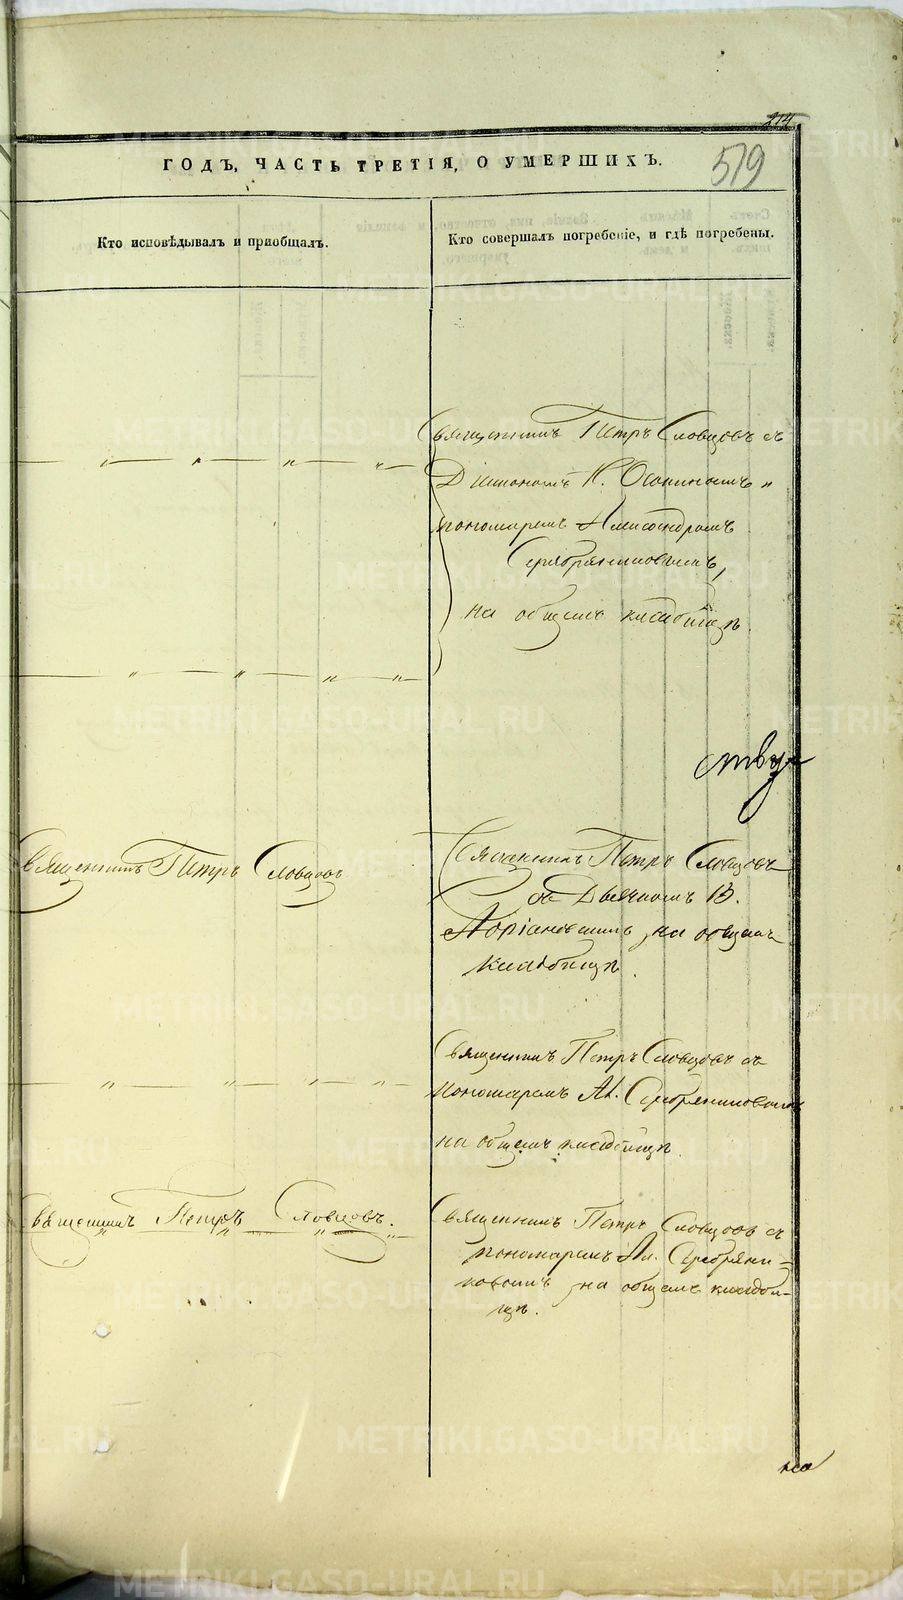 214
519
ГОДЪ, ЧАСТЬ ТРЕТІЯ, О УМЕРШИХЪ.
Кто исповѣдывалъ и пріобщалъ.
Кто совершалъ погребеніе, и гдѣ погребены.
Священникъ Петръ Словцовъ съ
Діакономъ К. Осокинымъ и
пономаремъ Александромъ
Серебрянниковымъ,
на общемъ кладбищѣ.
ству
Священникъ Петръ Словцовъ
Священникъ Петръ Словцовъ
съ Дьячкомъ В.
на общемъ
кладбищѣ.
Священникъ Петръ Словцовъ съ
пономаремъ Ал. Серебрянниковымъ
на общемъ кладбищѣ.
Священникъ Петръ Словцовъ.
Священникъ Петръ Словцовъ съ
пономаремъ Ал. Серебрянни=
ковымъ на общемъ кладби-
щѣ.
METRIKI.GASO-URAL.RU